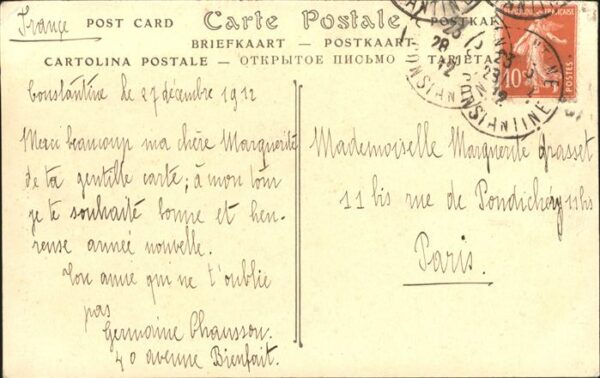 France
POST CARD Carte Postale POSTKAR
BRIEFKAART — POSTKAART
CARTOLINA POSTALE — ОТКРЫТОЕ ПИСЬМО — TARJETA
CONSTANTINE
CONSTANTINE
10
POSTES
Constantine le 27 décembre 1912
Merci beaucoup ma chère Marguerite
de ta gentille carte; à mon tour
je te souhaite bonne et heu-
reuse année nouvelle.
Ton amie qui ne t'oublie
pas
Germaine Chausson.
40 avenue Bienfait.
Mademoiselle Marguerite Grasset
11 bis rue de Pondichéry 11 bis
Paris.